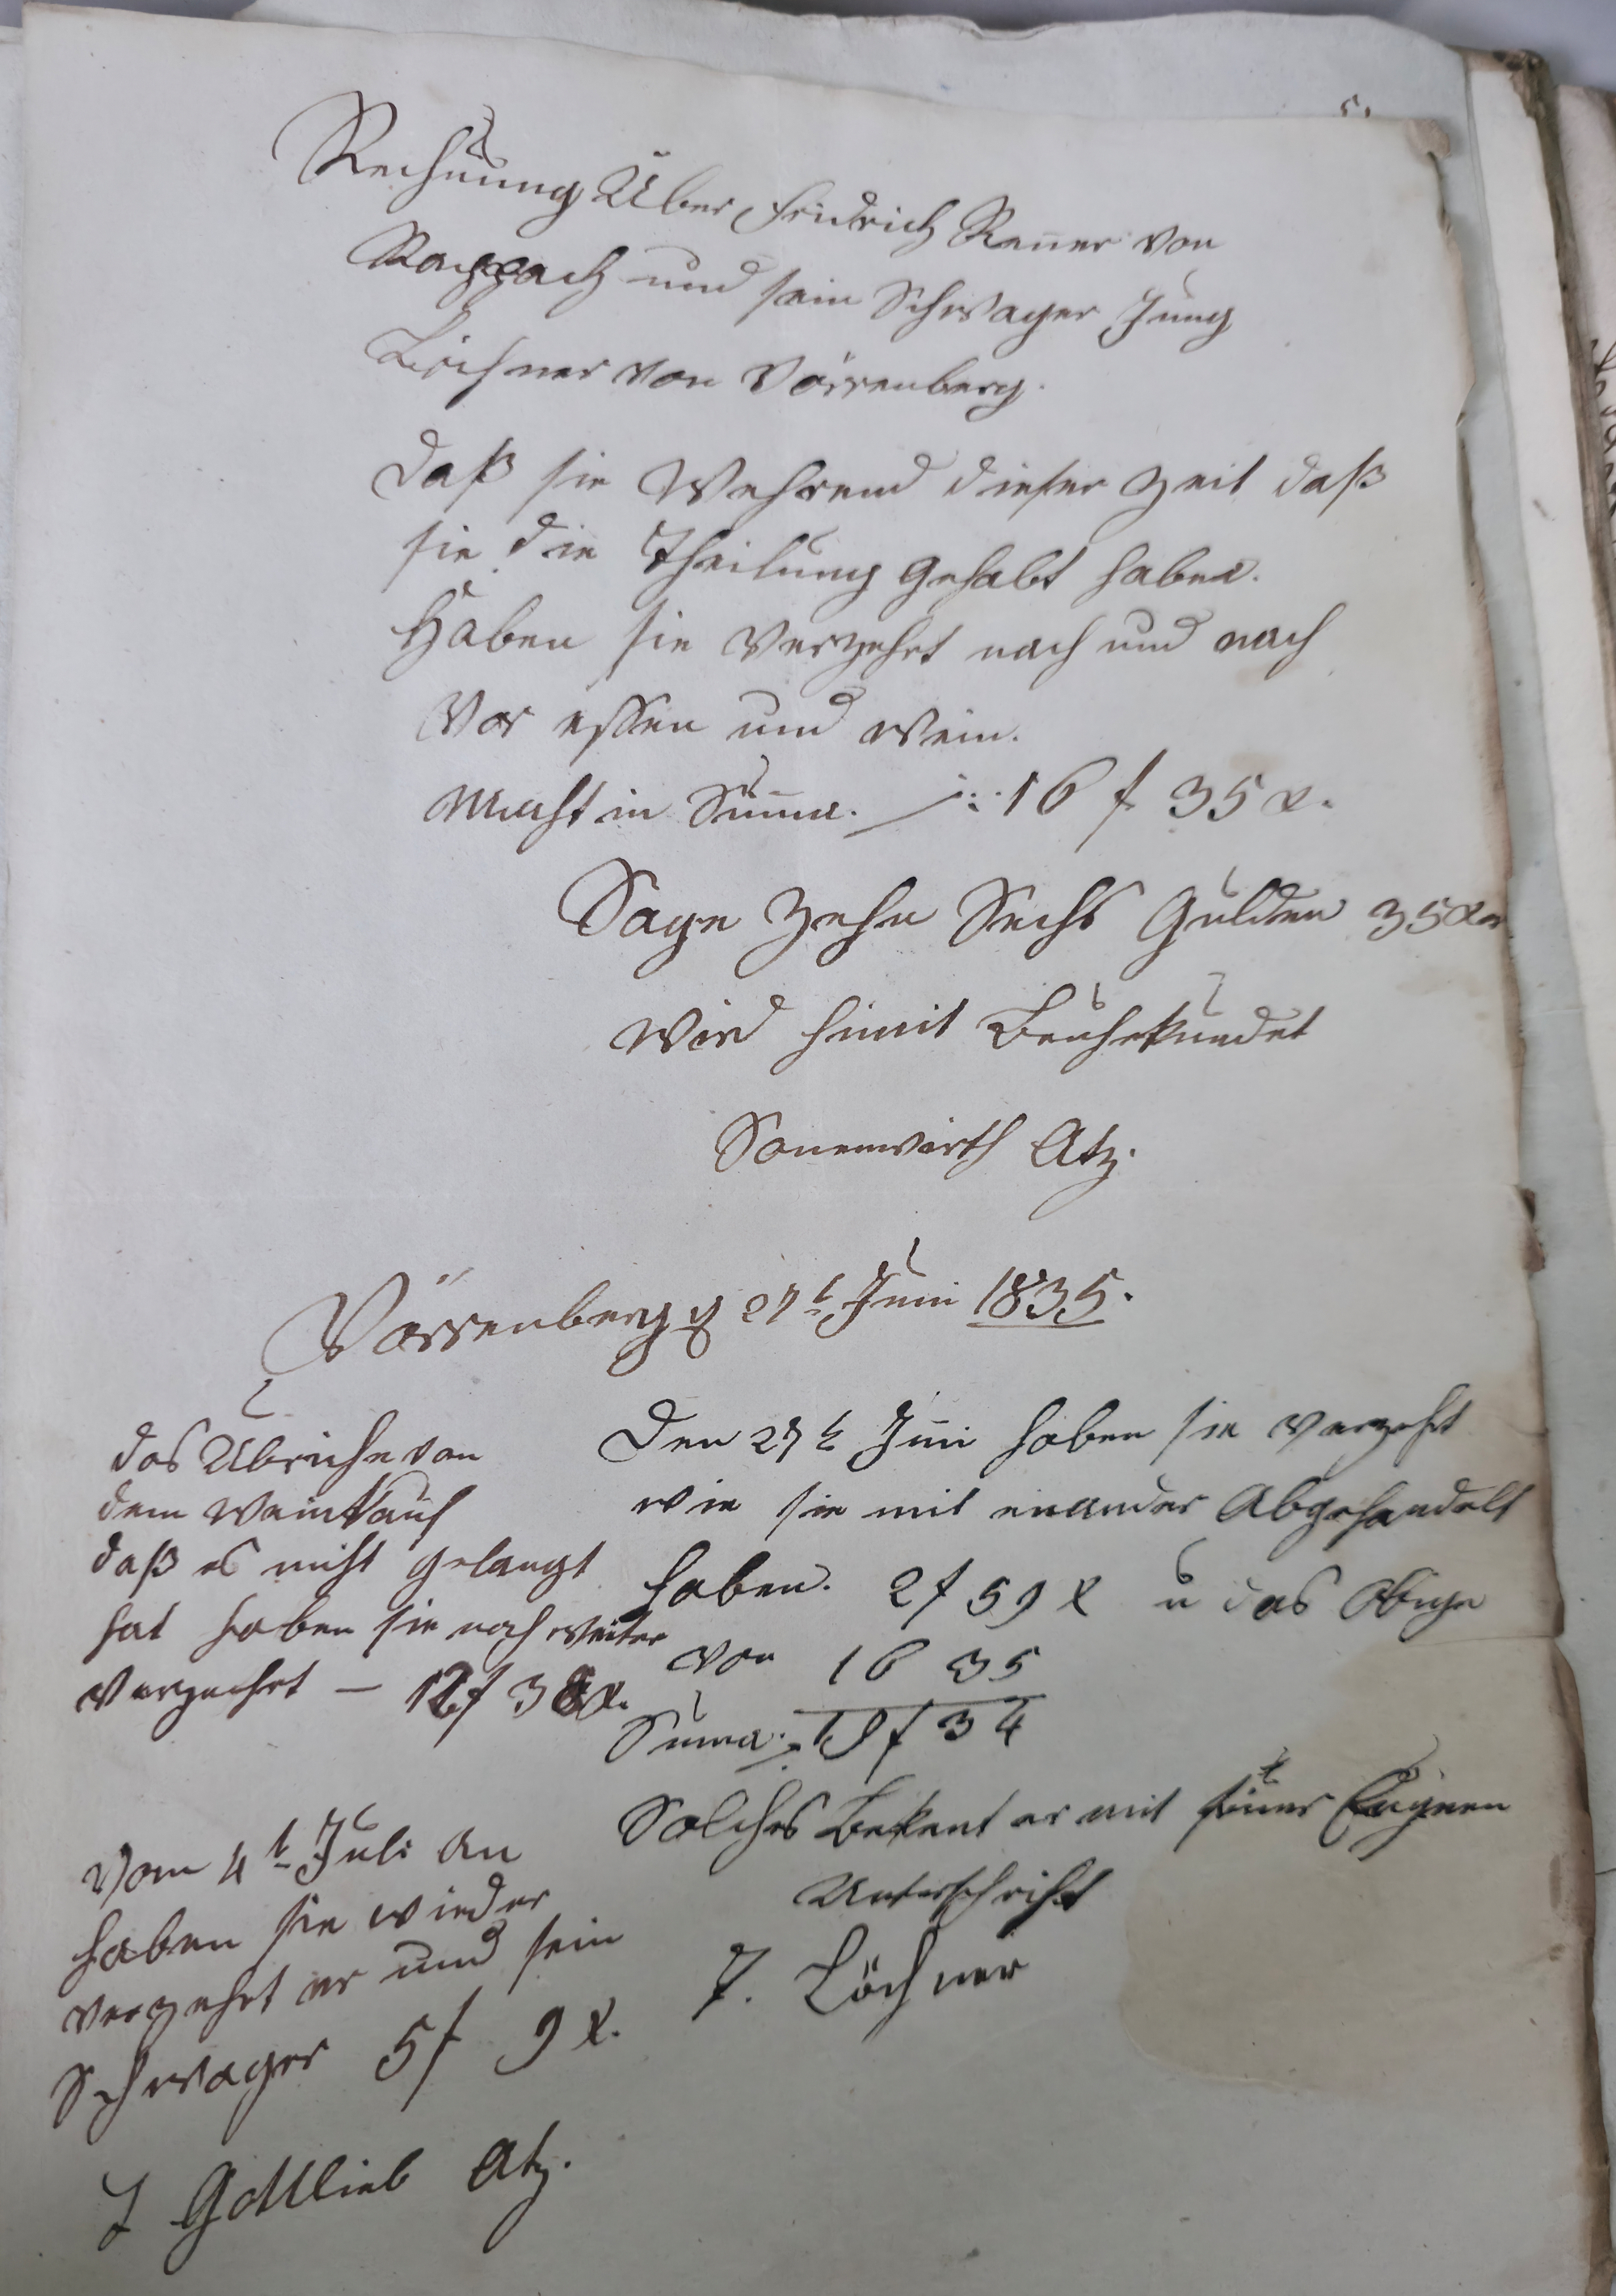 Rechnung Über Fridrich Rauer von
Rappach und sein Schwager Jung
Löchner von Vörrenberg.
daß sie Wehrend dieser Zeit daß
sie die Theilung gehabt haben.
Haben sie verzehrt nach und nach
Vor essen und wein.
Macht in Suma. 16 f 35 x.
Sage Zehn Sechs Gulden 35 xr
Wird himit Beuhrkundet
Sonenwirth Atz.
Vörrenberg d 27t Juni 1835.
Den 27t Juni haben sie verzehrt
wie sie mit einander Abgehandelt
haben. 2 f 59 x u das Obige
von 16 35
Suma. 19 f 34
Solches Bekent er mit seiner Eugnen
Unterschrift
J. Löchner
das Übriche von
dem Weinkauf
daß es nicht gelangt
hat haben sie noch weiter
verzehrt — 12 f 38 x.
Vom 4t Juli an
haben sie wieder
verzehrt er und sein
Schwager 5 f 9 x.
J Gottlieb Atz.